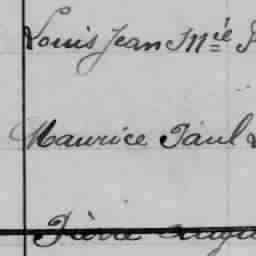 Louis Jean Mie
Maurice Paul
Pierre